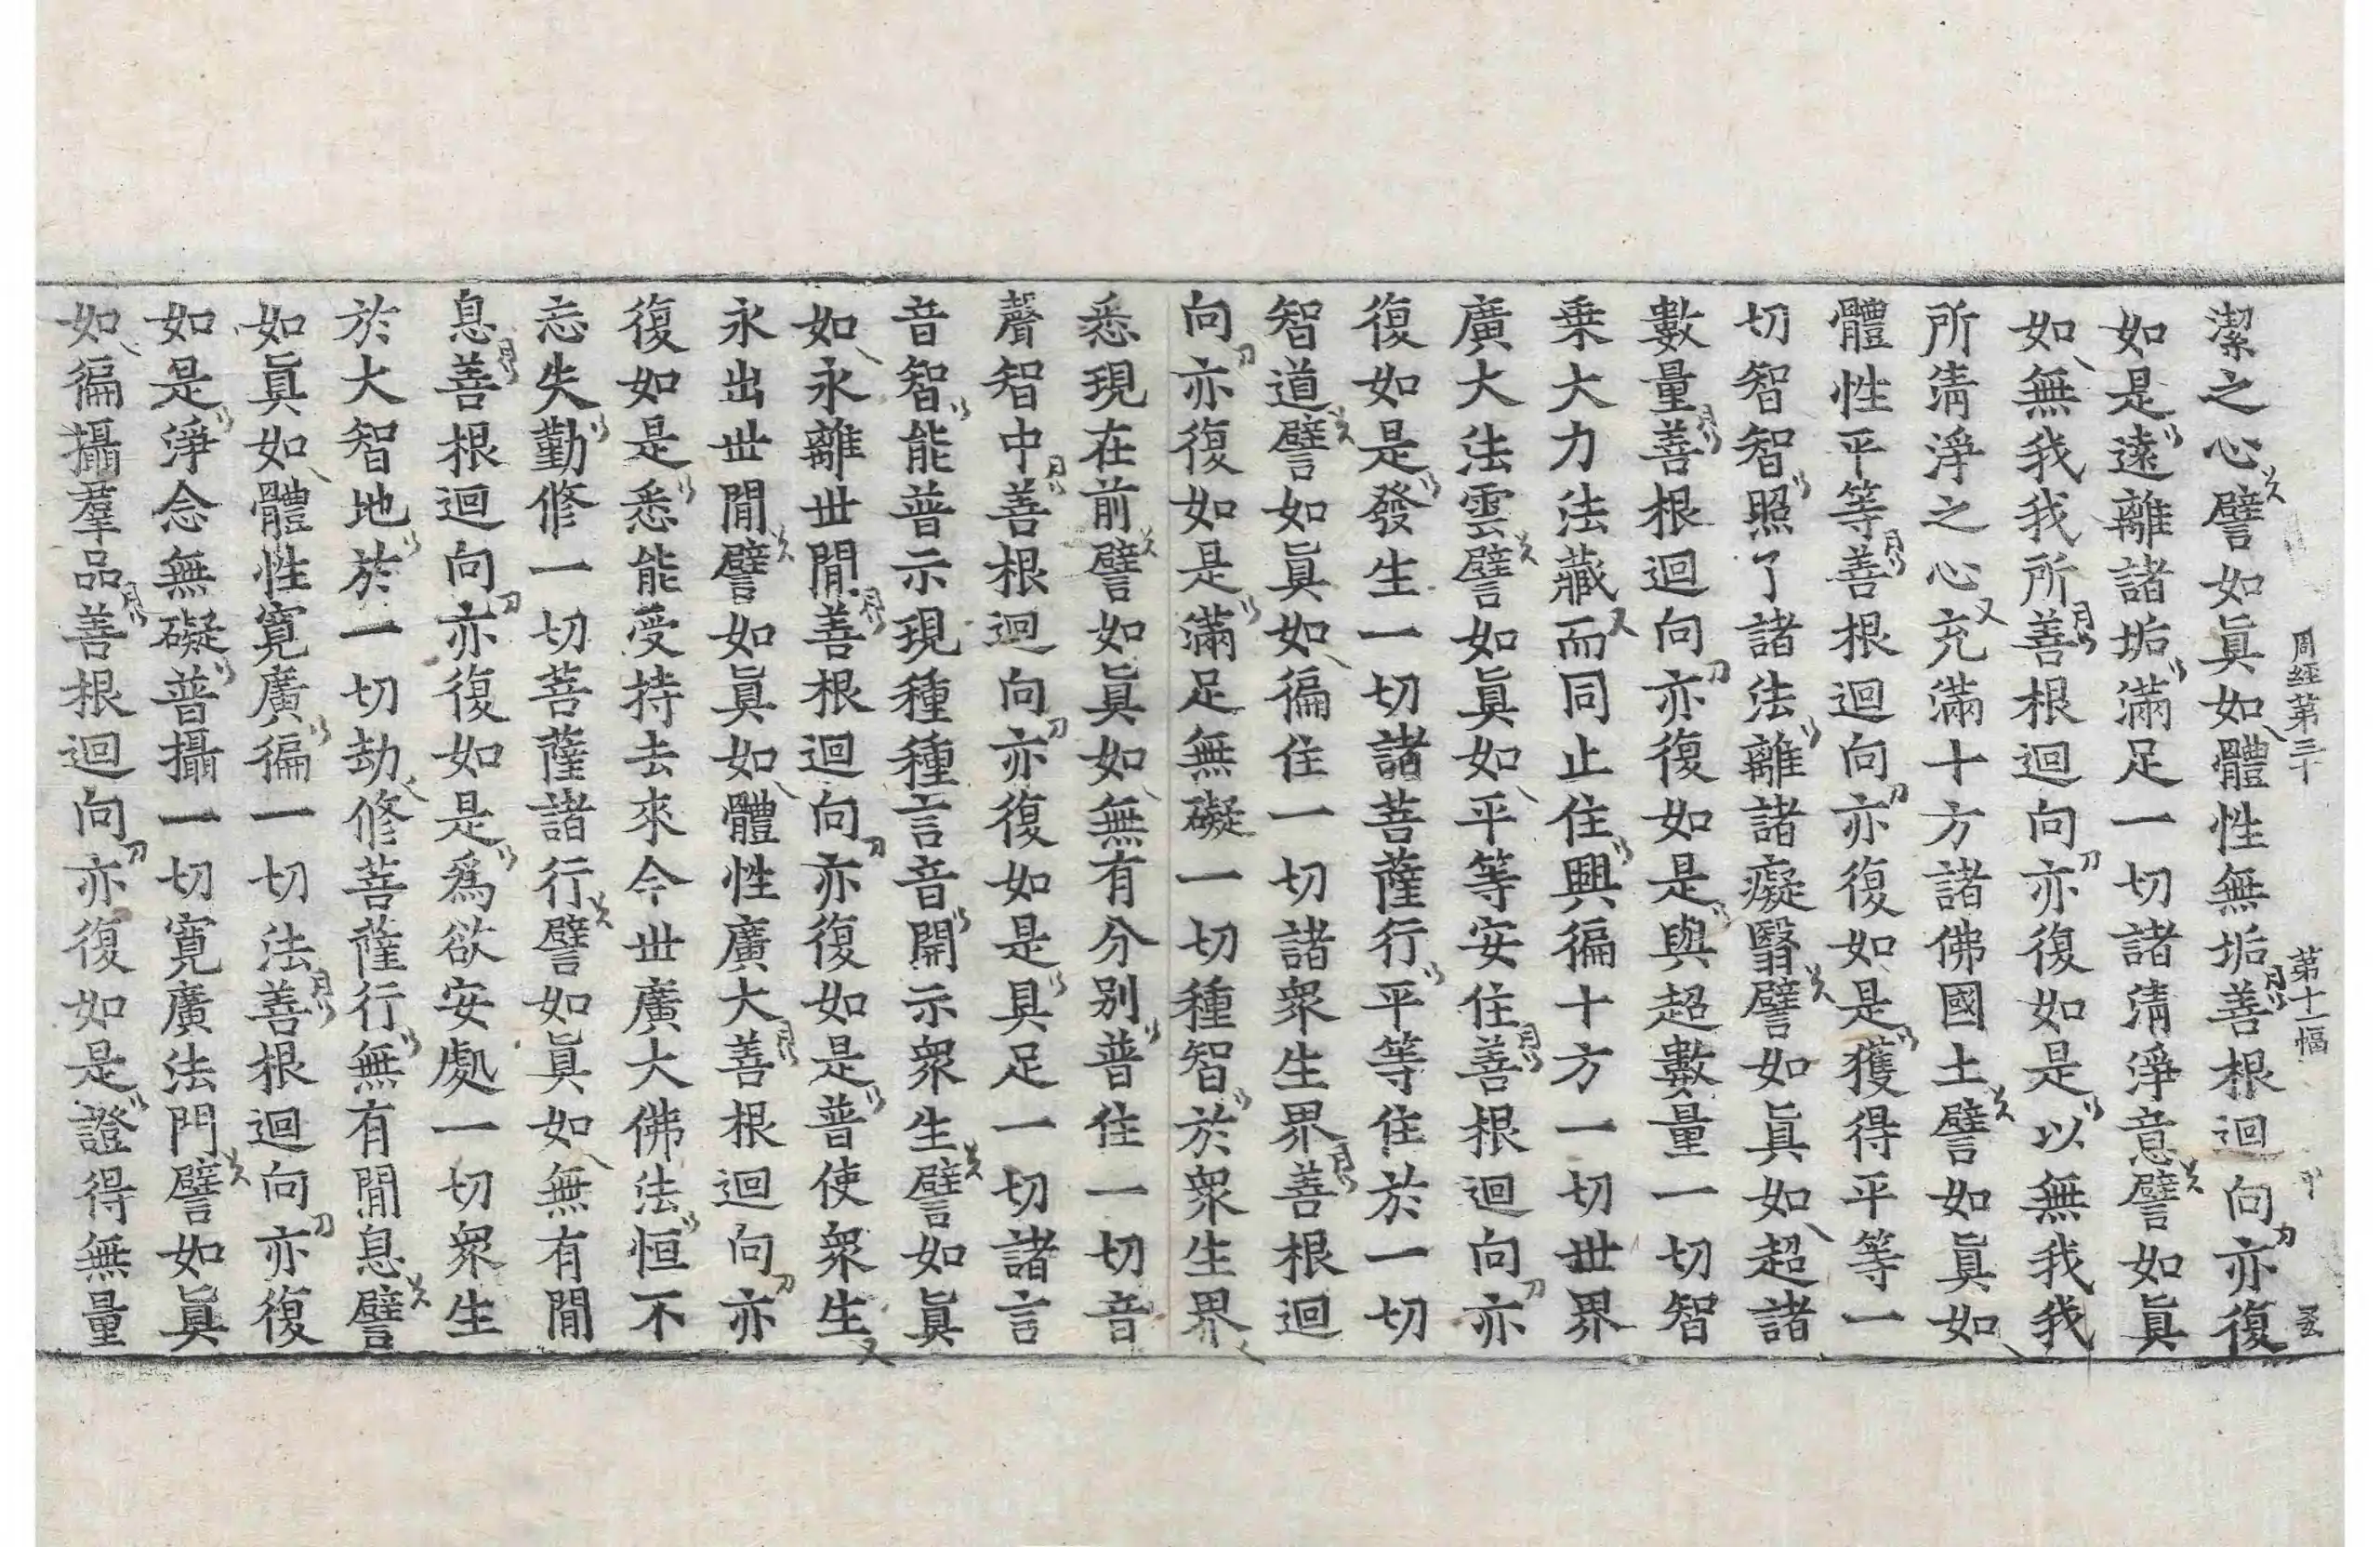 周經第三十 第十一幅
潔之心譬如眞如體性無垢善根迴向亦復
如是遠離諸垢滿足一切諸淸淨意譬如眞
如無我我所善根迴向亦復如是以無我我
所淸淨之心充滿十方諸佛國土譬如眞如
體性平等善根迴向亦復如是獲得平等一
切智智照了諸法離諸癡翳譬如眞如超諸
數量善根迴向亦復如是與超數量一切智
乗大力法藏而同止住興徧十方一切世界
廣大法雲譬如眞如平等安住善根迴向亦
復如是發生一切諸菩薩行平等住於一切
智道譬如眞如徧住一切諸衆生界善根迴
向亦復如是滿足無礙一切種智於衆生界
悉現在前譬如眞如無有分别普住一切音
聲智中善根迴向亦復如是具足一切諸言
音智能普示現種種言音開示衆生譬如眞
如永離世閒善根迴向亦復如是普使衆生
永出世閒譬如眞如體性廣大善根迴向亦
復如是悉能受持去來今世廣大佛法恒不
忘失勤修一切菩薩諸行譬如眞如無有閒
息善根迴向亦復如是爲欲安處一切衆生
於大智地於一切劫修菩薩行無有閒息譬
如眞如體性寬廣徧一切法善根迴向亦復
如是淨念無礙普攝一切寬廣法門譬如眞
如徧攝羣品善根迴向亦復如是證得無量